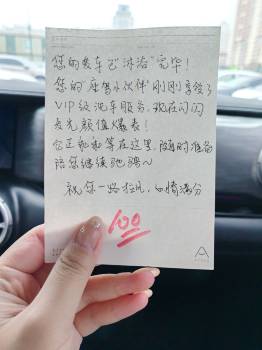 您的爱车已“沐浴”完毕！
您的“座驾小伙伴”刚刚享受了
VIP级洗车服务，现在闪闪
发光颜值爆表！
它正乖乖等在这里，随时准备
陪您继续驰骋～
祝您一路狂飙，心情满分
100
A